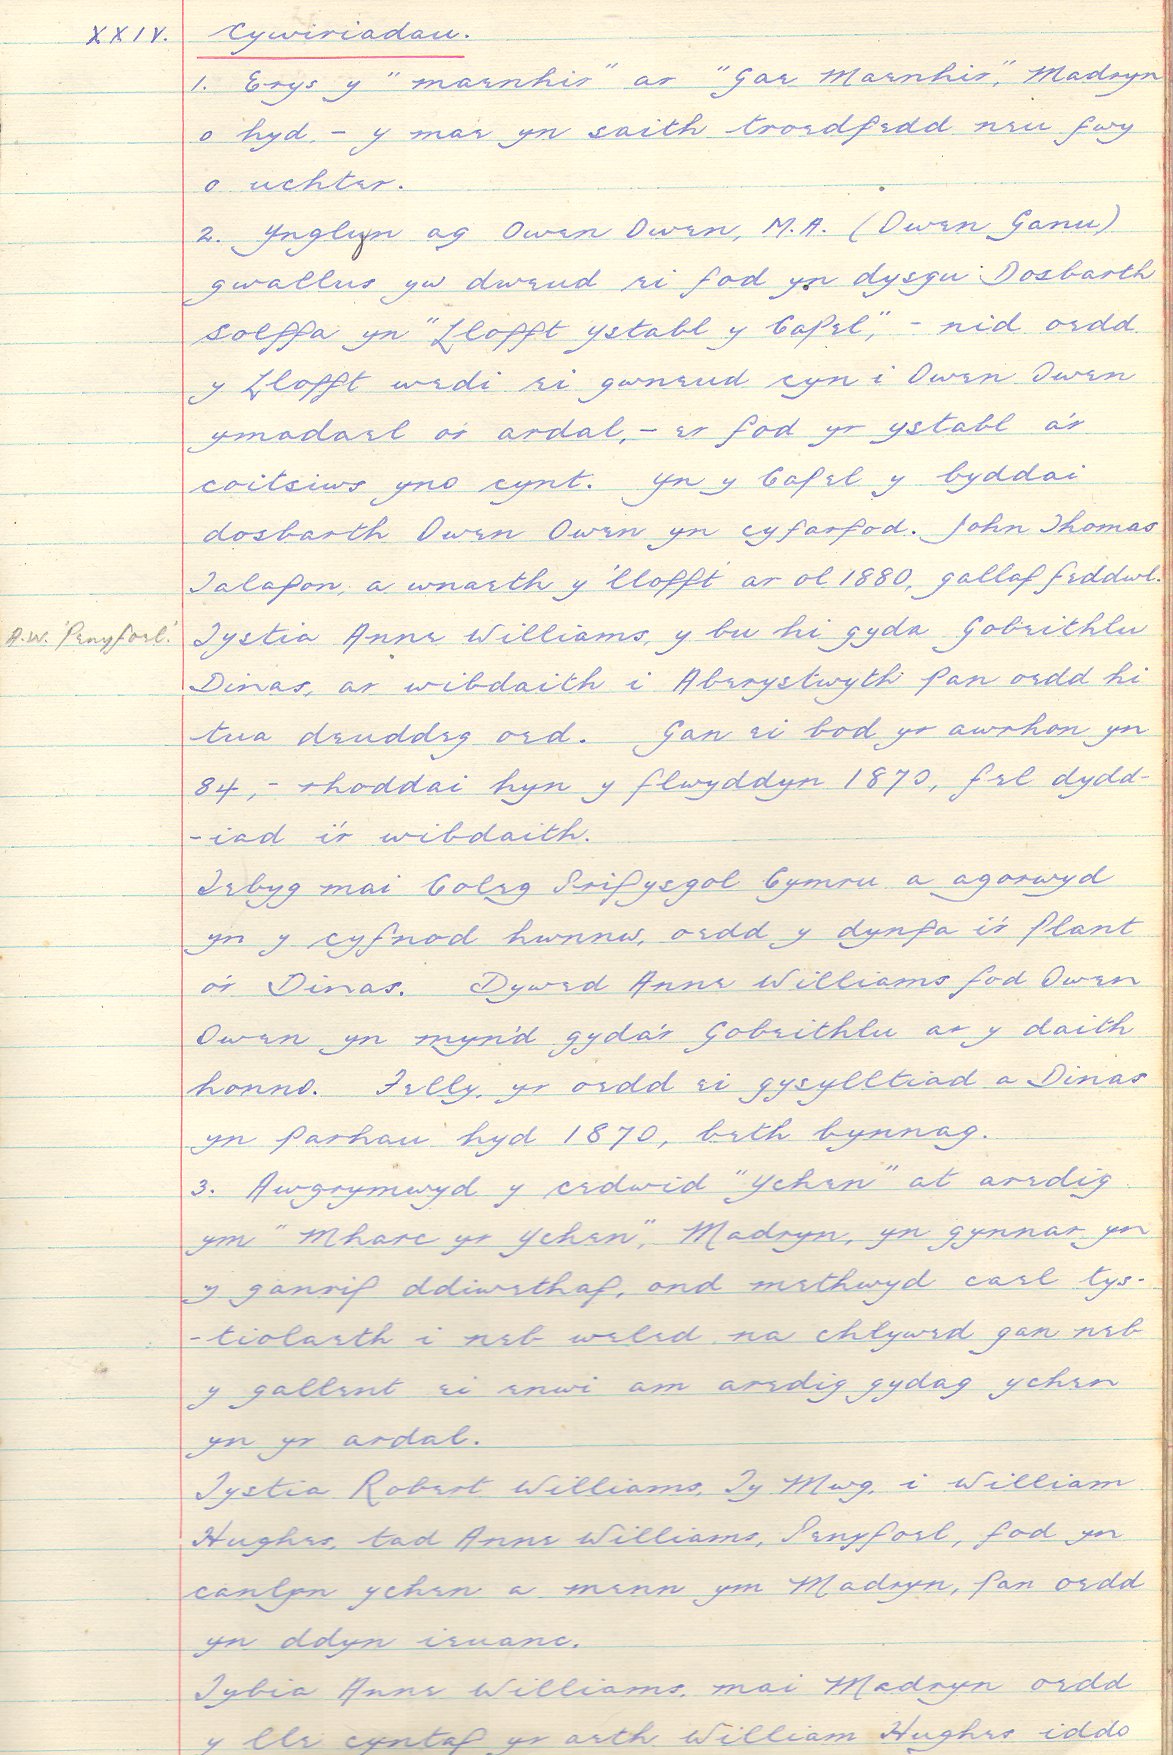 XXIV. Cywiriadau.
1. Erys y "maenhir" ar "Gae Maenhir", Madryn
o hyd, - y mae yn saith troedfedd neu fwy
o uchter.
2. Ynglyn ag Owen Owen, M.A. (Owen Ganu)
gwallus yw dweud ei fod yn dysgu Dosbarth
Solffa yn "Llofft Ystabl y Capel", - nid oedd
y Llofft wedi ei gwneud cyn i Owen Owen
ymadael o'r ardal, - er fod yr ystabl a'r
coitsiws yno cynt. Yn y Capel y byddai
dosbarth Owen Owen yn cyfarfod. John Thomas
Talafon, a wnaeth y 'llofft' ar ol 1880, gallaf feddwl.
A.W. 'Penyfoel'. Tystia Anne Williams, y bu hi gyda Gobeithlu
Dinas, ar wibdaith i Aberystwyth pan oedd hi
tua deuddeg oed. Gan ei bod yr awrhon yn
84, - rhoddai hyn y flwyddyn 1870, fel dydd-
-iad i'r wibdaith.
Tebyg mai Coleg Prifysgol Cymru a agorwyd
yn y cyfnod hwnnw, oedd y dynfa i'r plant
o'r Dinas. Dywed Anne Williams fod Owen
Owen yn myn'd gyda'r Gobeithlu ar y daith
honno. Felly, yr oedd ei gysylltiad a Dinas
yn parhau hyd 1870, beth bynnag.
3. Awgrymwyd y cedwid "Ychen" at aredig
ym "Mharc yr Ychen", Madryn, yn gynnar yn
y ganrif ddiwethaf, ond methwyd cael tys-
-tiolaeth i neb weled na chlywed gan neb
y gallent ei enwi am aredig gydag ychen
yn yr ardal.
Tystia Robert Williams, Ty Mwg, i William
Hughes, tad Anne Williams, Penyfoel, fod yn
canlyn ychen a menn ym Madryn, pan oedd
yn ddyn ieuanc.
Tybia Anne Williams, mai Madryn oedd
y lle cyntaf yr aeth William Hughes iddo